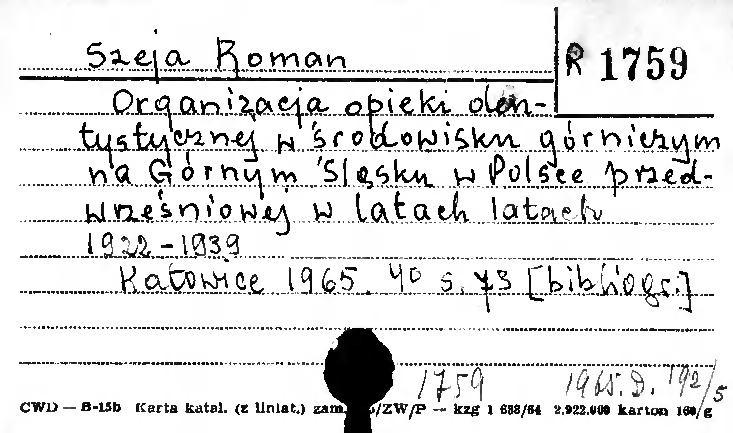 Szeja Roman
R 1759
Organizacja opieki den-
tystycznej w środowisku górniczym
na Górnym Śląsku w Polsce przed-
wrześniowej w latach latach
1922-1939
Katowice 1965. 40 s. 73 [bibliogr.]
1759 1965.D. 192/5
CWD — B-15b Karta katal. (z liniat.) zam. /ZW/P — kzg 1 638/64 2.922.000 karton 160/g